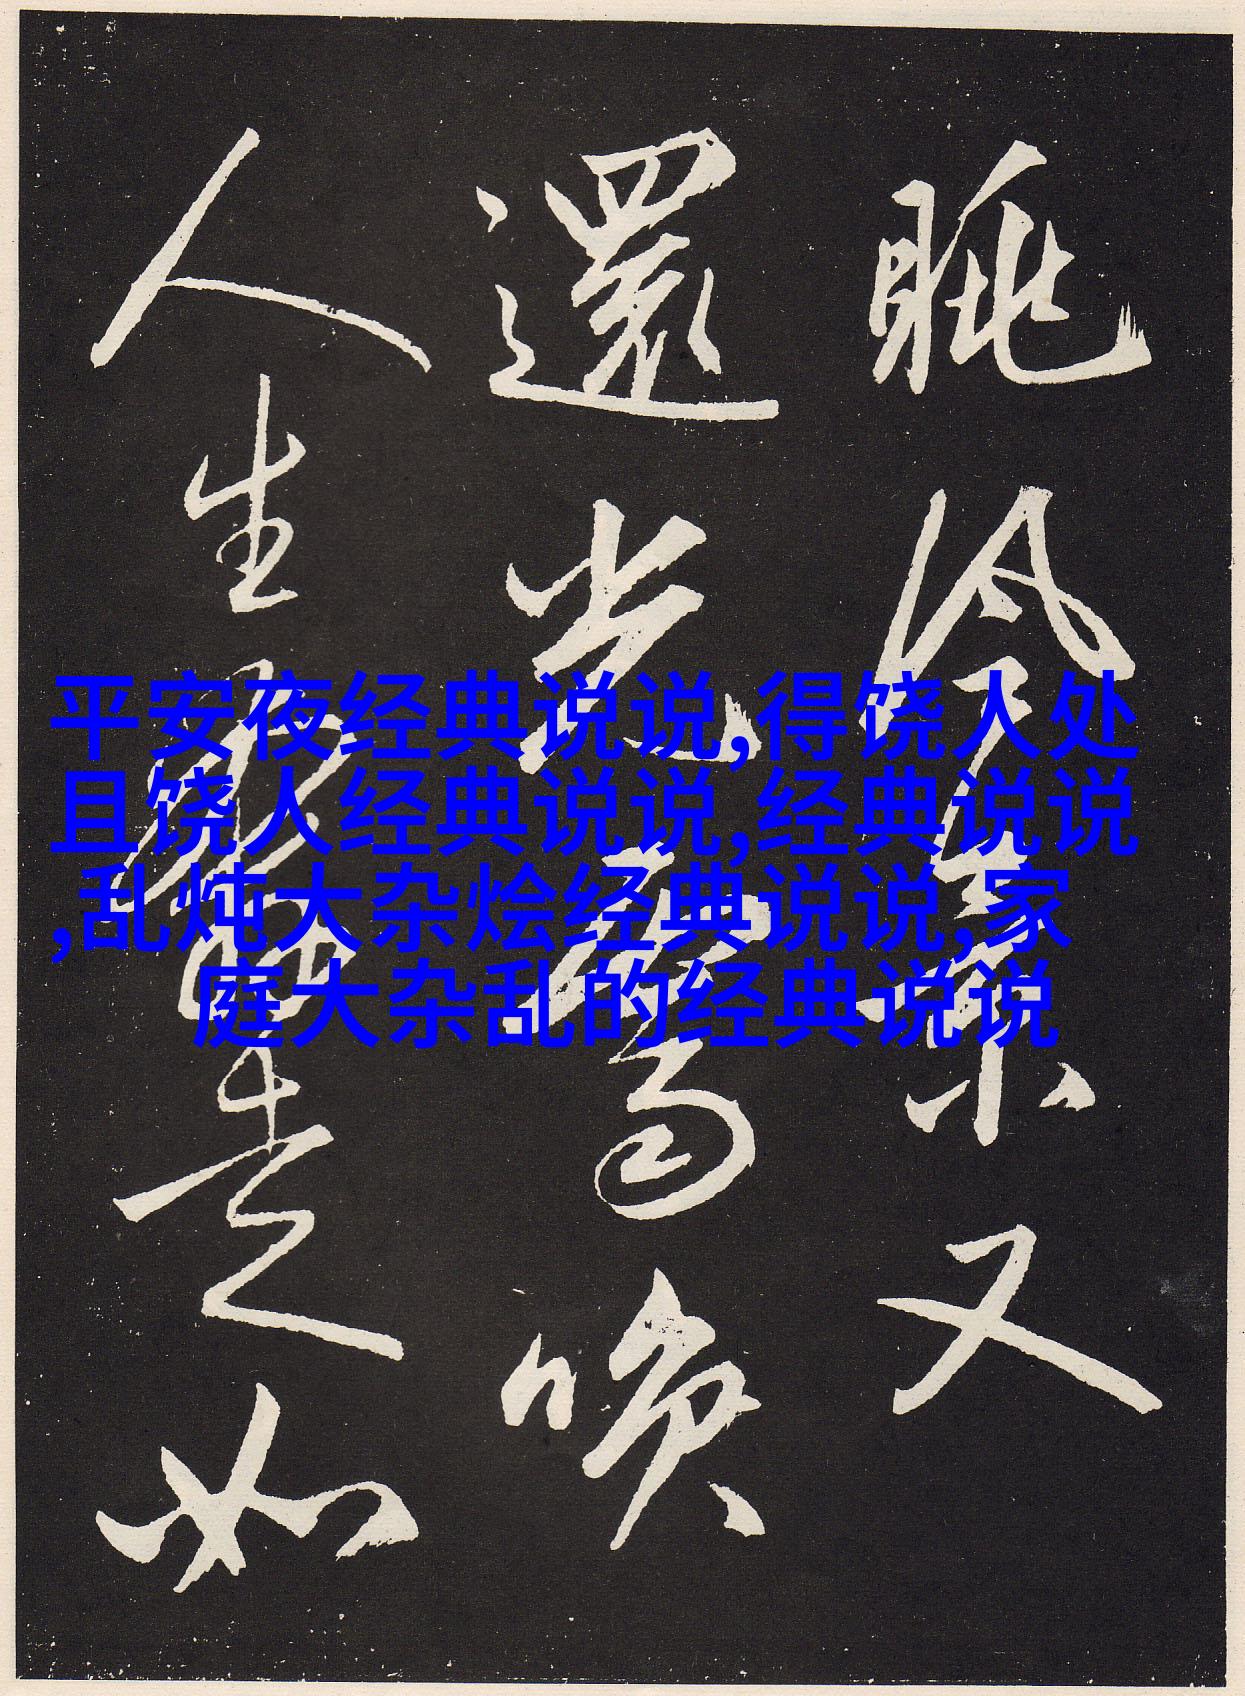 平安夜经典说说,得饶人处
且饶人经典说说,经典说说
,乱炖大杂烩经典说说,家
庭大杂乱的经典说说
眺又
還喚
人生走如